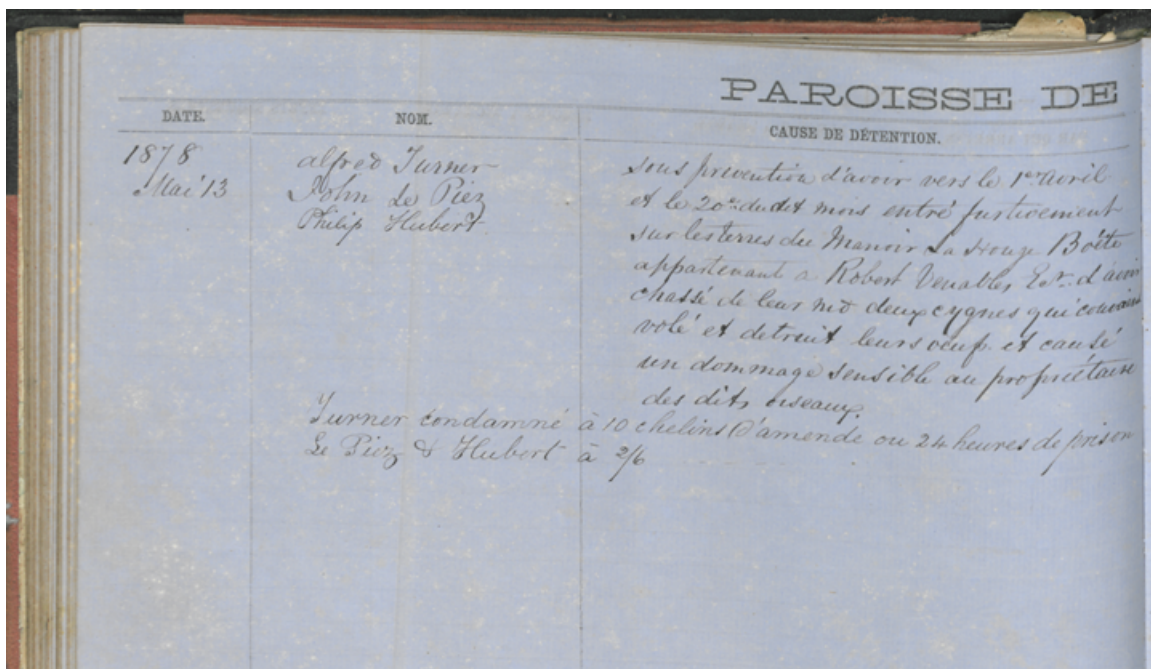 PAROISSE DE
DATE. NOM. CAUSE DE DÉTENTION.
1878 alfred Turner sous prévention d'avoir vers le 1er avril
Mai 13 John Le Piez et le 20e du dit mois entré furtivement
Philip Hubert sur les terres du Manoir La Houge Boëte
appartenant a Robert Venables Esr. d'avoir
chassé de leur nid deux cygnes qui couvaient
volé et detruit leurs oeufs et causé
un dommage sensible au propriétaire
des dits oiseaux.
Turner condamné à 10 chelins d'amende ou 24 heures de prison
Le Piez & Hubert à 2/6